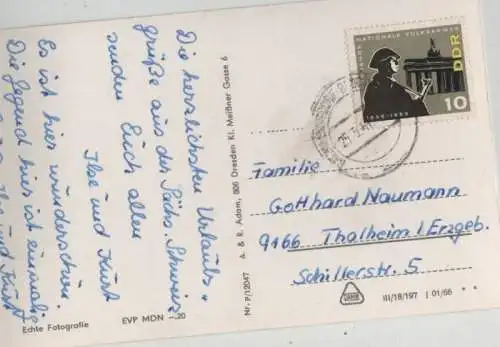 Die herzlichsten Urlaubs-
grüße aus der Sächs. Schweiz
senden Euch allen
Ilse und Kurt
Es ist hier wunderschön.
Die Gegend hier ist einmalig
Ilse und Kurt
Echte Fotografie
EVP MDN –.20
Nr. P/12047 A. & R. Adam, 806 Dresden Kl. Meißner Gasse 6
NATIONALE VOLKSARMEE
DDR
10
1956-1966
Familie
Gotthard Naumann
9166 Thalheim/Erzgeb.
Schillerstr. 5
III/18/197 01/66